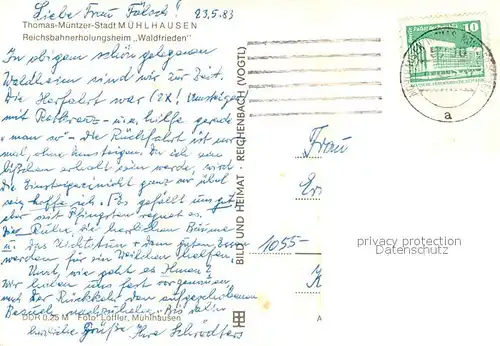 Liebe Frau Fälsch! 23.5.83
Thomas-Müntzer-Stadt MÜHLHAUSEN
Reichsbahnerholungsheim „Waldfrieden"
In obigem schön gelegenen
Waldheim sind wir zur Zeit.
Die Herfahrt war (2x! Umsteigen
mit Rotkreuz- hilfe gerade
man so" - Die Rückfahrt ist nur
mal, ohne Umsteigen. Da ich ein
bißchen erholt sein werde, wird
die nicht ganz so übel
hoffe ich. Es gefällt uns gut
aber seit Pfingsten regnet es.
Die Ruhe, die herrlichen Bäume
u. das Nichtstun + dem guten Essen
werden für ein Weilchen helfen.
Und, wie geht es Ihnen?
Wir haben uns fest vorgenommen
nach der Rückkehr den aufgeschobenen
Besuch nachzuholen. Bis dahin
herzliche Grüße Ihre Schrödters
DDR 0,25 M Foto: Löffler, Mühlhausen
BILD UND HEIMAT · REICHENBACH (VOGTL)
10
a
Frau
1055-
privacy protection
Datenschutz
A